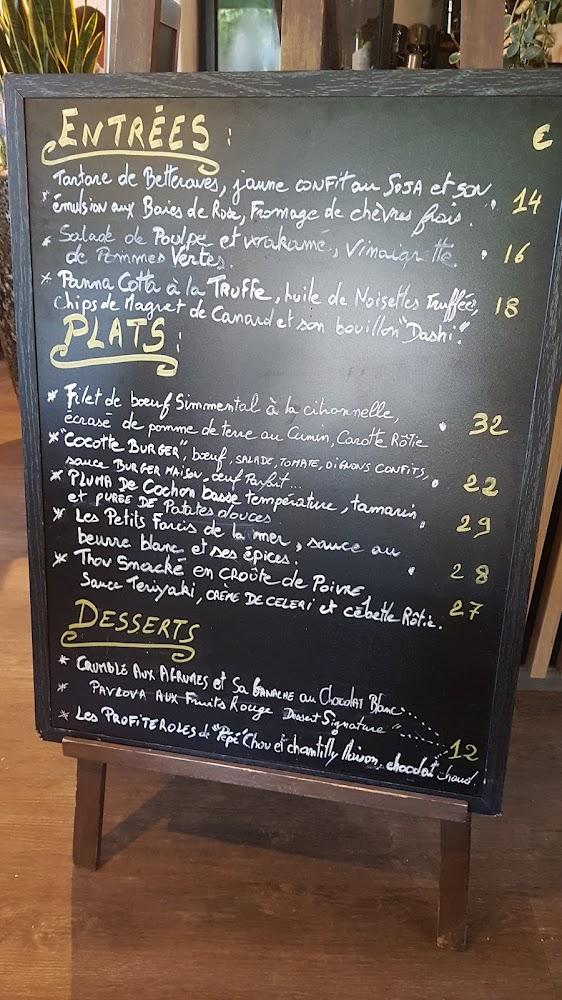 ENTRÉES : €
Tartare de Betteraves, jaune CONFIT au SOJA et son
* émulsion aux Baies de Rose, Fromage de chèvres frais. • 14
* Salade de Poulpe et wakamé, Vinaigrette • 16
de Pommes Vertes.
* Panna Cotta à la TRUFFE, huile de Noisettes Truffée, 18
Chips de Magret de Canard et son bouillon "Dashi".
PLATS :
* Filet de bœuf Simmental à la citronnelle, • 32
écrasé de pomme de terre au Cumin, Carotte Rôtie
* "COCOTTE BURGER", bœuf, SALADE, TOMATE, OIGNONS CONFITS, • 22
sauce BURGER MAISON, œuf Parfait...
* PLUMA DE Cochon basse température, tamarin • 29
et PURÉE DE Patates douces
* Les Petits Farcis de la mer, sauce au • 28
beurre blanc et ses épices.
* Thon Snacké en CROÛTE de POIVRE, 27
Sauce Teriyaki, CRÈME DE CELERI et cébette Rôtie.
DESSERTS
* CRUMBLE AUX AGRUMES et Sa GANACHE au Chocolat Blanc
* PAVLOVA AUX Fruits Rouge Dessert Signature"
* Les PROFITEROLES de "Pépé" Chou et chantilly Maison, chocolat chaud. 12